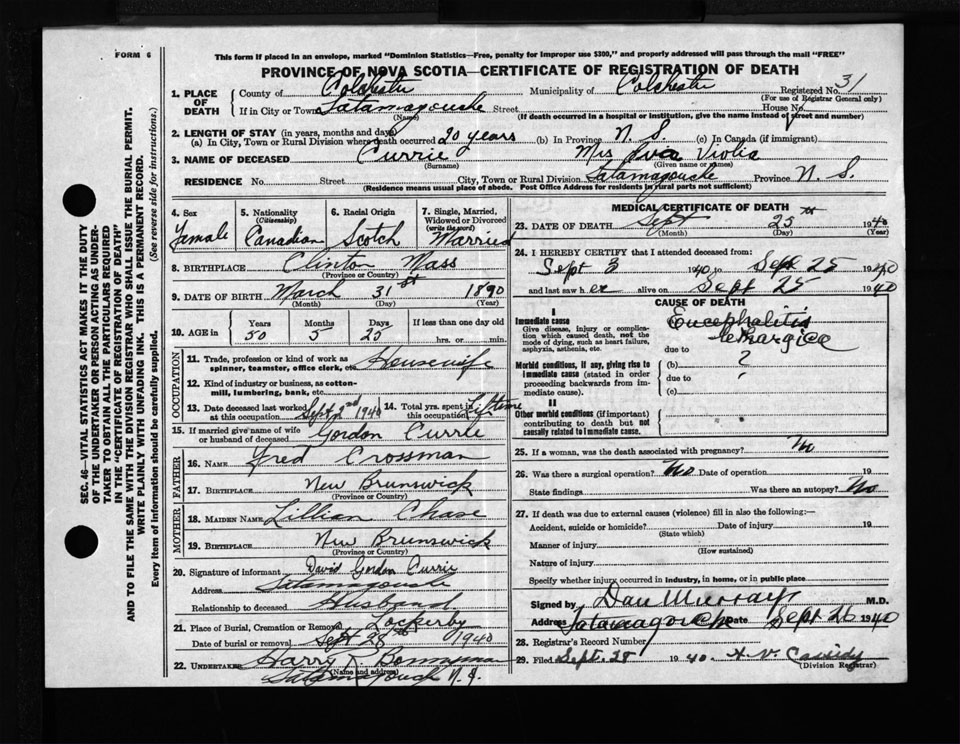 FORM 6
This form if placed in an envelope, marked "Dominion Statistics—Free, penalty for improper use $300," and properly addressed will pass through the mail "FREE"
PROVINCE OF NOVA SCOTIA—CERTIFICATE OF REGISTRATION OF DEATH
1. PLACE OF DEATH
County of Colchester Municipality of Colchester Registered No. 31
(For use of Registrar General only)
If in City or Town Tatamagouche Street House No.
(Name) (If death occurred in a hospital or institution, give the name instead of street and number)
2. LENGTH OF STAY (in years, months and days)
(a) In City, Town or Rural Division where death occurred 20 years (b) In Province N. S. (c) In Canada (if immigrant)
3. NAME OF DECEASED Currie Mrs Eva Viola
(Surname) (Given name or names)
RESIDENCE No. Street City, Town or Rural Division Tatamagouche Province N. S.
(Residence means usual place of abode. Post Office Address for residents in rural parts not sufficient)
4. Sex Female
5. Nationality (Citizenship) Canadian
6. Racial Origin Scotch
7. Single, Married, Widowed or Divorced (write the word) Married
8. BIRTHPLACE Clinton Mass
(Province or Country)
9. DATE OF BIRTH March 31st 1890
(Month) (Day) (Year)
10. AGE in Years Months Days If less than one day old
50 5 25 hrs. or min.
OCCUPATION
11. Trade, profession or kind of work as spinner, teamster, office clerk, etc. Housewife
12. Kind of industry or business, as cotton-mill, lumbering, bank, etc.
13. Date deceased last worked at this occupation Sept 2nd 1940 14. Total yrs. spent in this occupation Lifetime
15. If married give name of wife or husband of deceased Gordon Currie
FATHER
16. NAME Fred Crossman
17. BIRTHPLACE New Brunswick
(Province or Country)
MOTHER
18. MAIDEN NAME Lillian Chase
19. BIRTHPLACE New Brunswick
(Province or Country)
20. Signature of informant David Gordon Currie
Address Tatamagouche
Relationship to deceased Husband
21. Place of Burial, Cremation or Removal Lockerby
Date of burial or removal Sept 28th 1940
22. UNDERTAKER Harry
(Name and address)
Tatamagouche N. S.
MEDICAL CERTIFICATE OF DEATH
23. DATE OF DEATH Sept 25th 1940
(Month) (Day) (Year)
24. I HEREBY CERTIFY that I attended deceased from:
Sept 3 1940 to Sept 25 1940
and last saw her alive on Sept 25 1940
CAUSE OF DEATH
I
Immediate cause
Give disease, injury or complication which caused death, not the mode of dying, such as heart failure, asphyxia, asthenia, etc.
Encephalitis
due to
Morbid conditions, if any, giving rise to immediate cause (stated in order proceeding backwards from immediate cause).
(b) ?
due to
(c)
II
Other morbid conditions (if important) contributing to death but not causally related to immediate cause.
25. If a woman, was the death associated with pregnancy? No
26. Was there a surgical operation? No Date of operation 19
State findings Was there an autopsy? No
27. If death was due to external causes (violence) fill in also the following:—
Accident, suicide or homicide? Date of injury 19
(State which)
Manner of injury
(How sustained)
Nature of injury
Specify whether injury occurred in industry, in home, or in public place
Signed by Dan Murray M.D.
Address Tatamagouche Date Sept 26 1940
28. Registrar's Record Number
29. Filed Sept. 28 1940 Cassidy
(Division Registrar)
SEC. 46—VITAL STATISTICS ACT MAKES IT THE DUTY
OF THE UNDERTAKER OR PERSON ACTING AS UNDER-
TAKER TO OBTAIN ALL THE PARTICULARS REQUIRED
IN THE "CERTIFICATE OF REGISTRATION OF DEATH"
AND TO FILE THE SAME WITH THE DIVISION REGISTRAR WHO SHALL ISSUE THE BURIAL PERMIT.
WRITE PLAINLY WITH UNFADING INK. THIS IS A PERMANENT RECORD.
Every item of information should be carefully supplied. (See reverse side for instructions.)